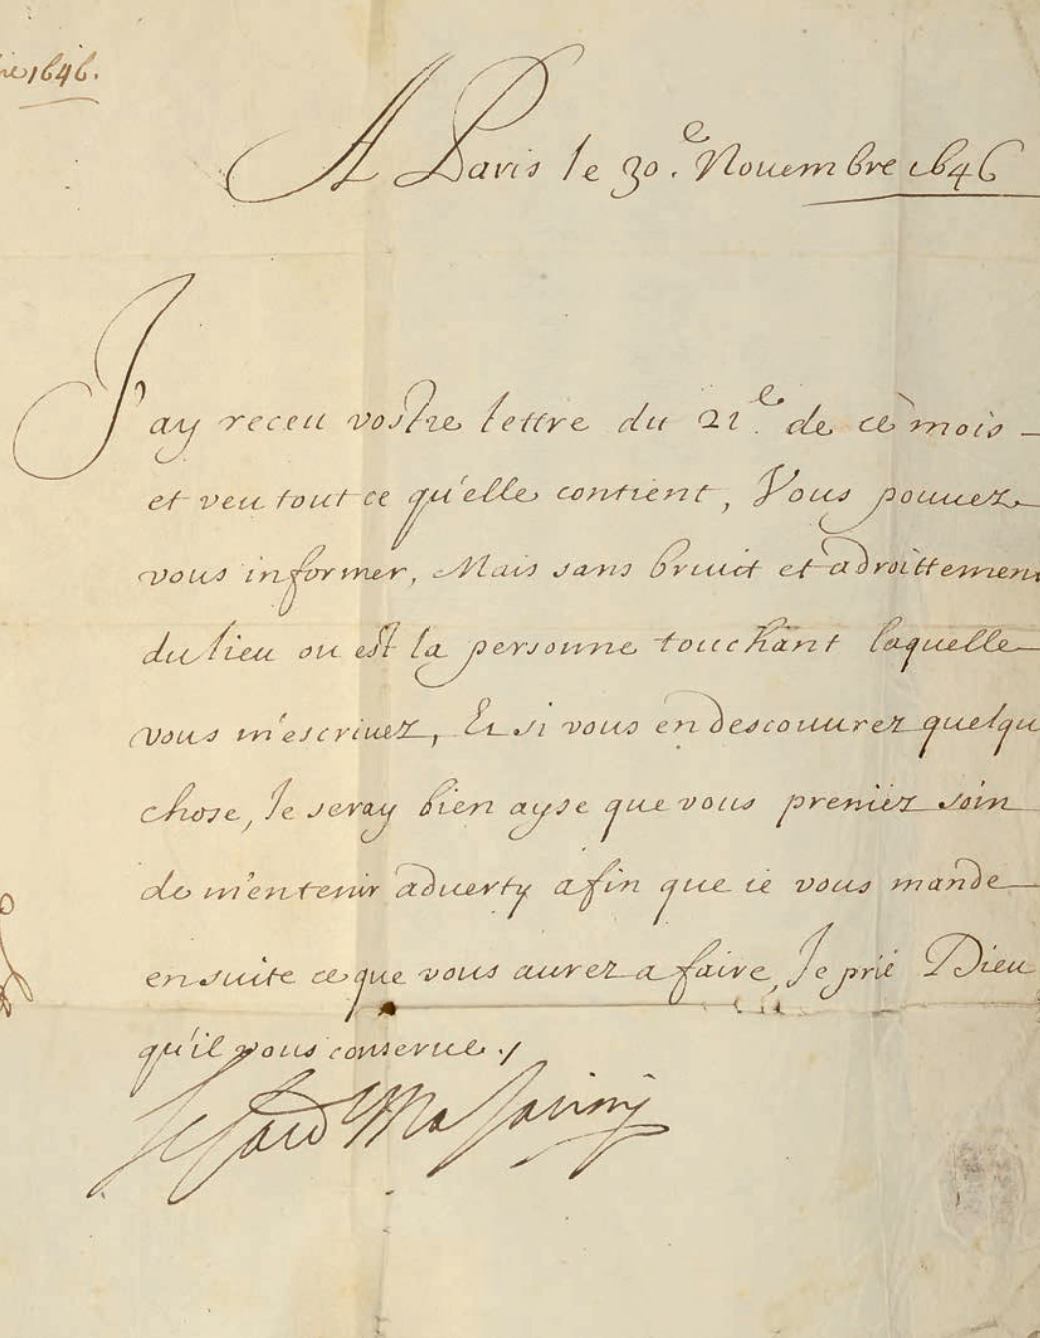 1646.
A Paris le 30.e Nouembre 1646
J'ay receu vostre lettre du 21.e de ce mois
et veu tout ce qu'elle contient, Vous pouuez
vous informer, Mais sans bruict et adroittement
du lieu ou est la personne touchant laquelle
vous m'escriuez, Et si vous en descouurez quelqu
chose, Je seray bien ayse que vous preniez soin
de m'en tenir aduerty afin que ie vous mande
en suite ce que vous aurez a faire, Je prie Dieu
qu'il vous conserue ./
le Card Mazarini